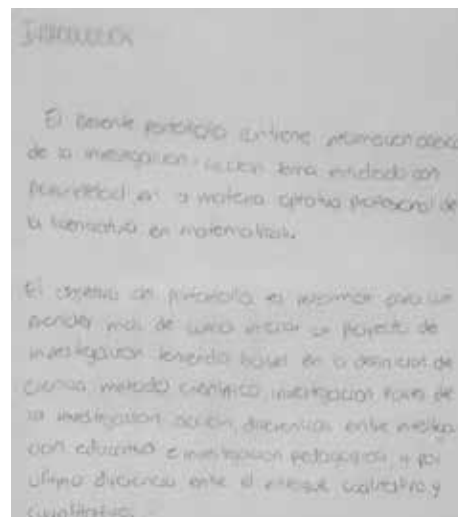 Introducción
El presente portafolio contiene información acerca
de la investigación acción tema estudiado con
en la materia optativa profesional de
la licenciatura en matemáticas.
El objetivo del portafolio es
más de como iniciar un proyecto de
investigación teniendo bases en la definición de
ciencia, método científico, investigación, de
la investigación acción, diferencias entre investiga
ción educativa e investigación pedagógica, y por
último diferencia entre el enfoque cualitativo y
cuantitativo.